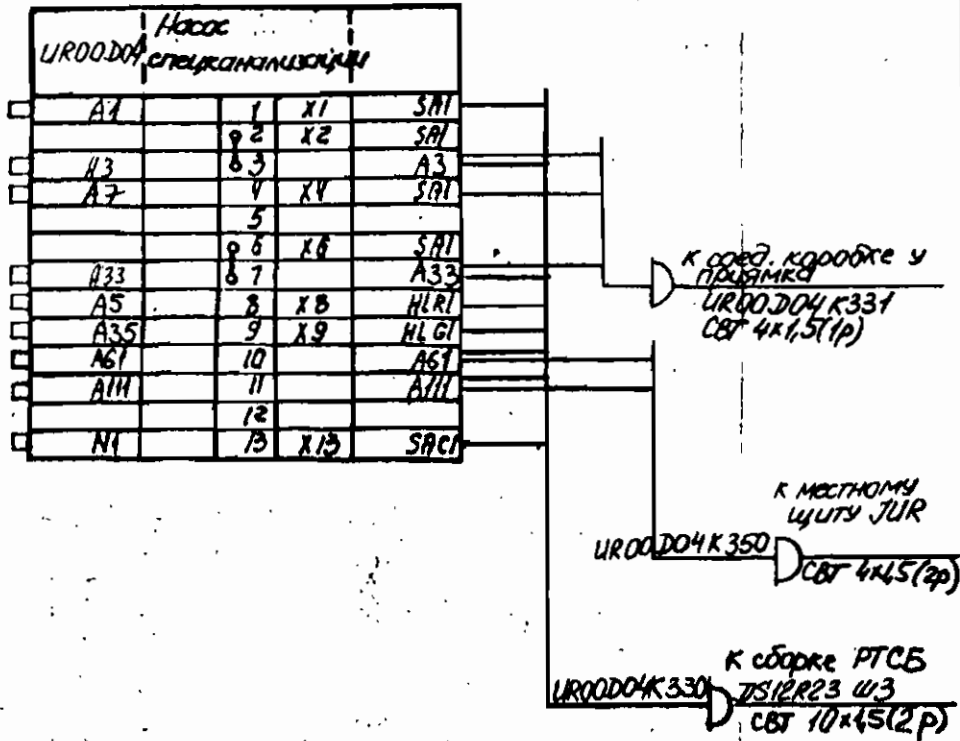 UR00D04 Насос
спецканализации
A1 1 X1 SA1
2 X2 SA1
A3 3 A3
A7 4 X4 SA1
5
6 X6 SA1
A33 7 A33
A5 8 X8 HLR1
A35 9 X9 HLG1
A61 10 A61
A111 11 A111
12
N1 13 X13 SAC1
к соед. коробке у
приямка
UR00D04K331
СВТ 4x1,5(1р)
к местному
щиту JUR
UR00D04K350
СВТ 4x1,5(2р)
к сборке РТСБ
UR00D04K330
DS12R23 ш3
СВТ 10x1,5(2р)